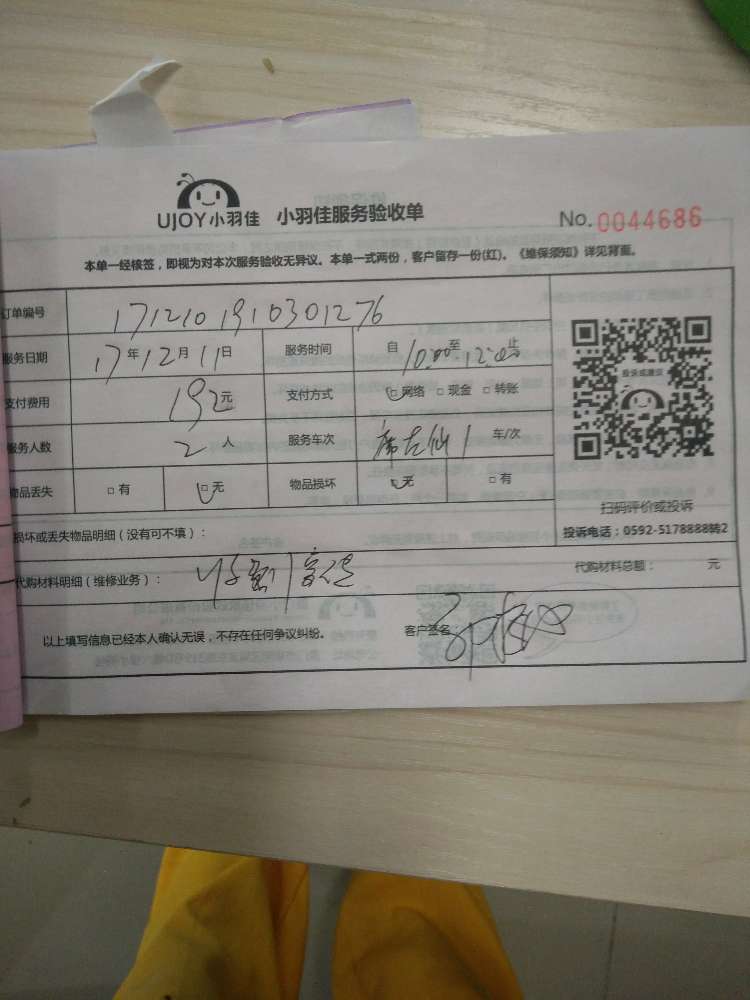 UJOY小羽佳 小羽佳服务验收单 No. 0044686
本单一经核签，即视为对本次服务验收无异议。本单一式两份，客户留存一份(红)。《维保须知》详见背面。
订单编号 1712101910301276
服务日期 17年12月11日 服务时间 自10:00至12:00止
支付费用 192元 支付方式 □网络 □现金 □转账
投诉或建议
服务人数 2人 服务车次 1 车/次
物品丢失 □有 □无 物品损坏 □无 □有
扫码评价或投诉
损坏或丢失物品明细（没有可不填）： 投诉电话：0592-5178888转2
代购材料明细（维修业务）： 代购材料总额： 元
以上填写信息已经本人确认无误，不存在任何争议纠纷。 客户签名